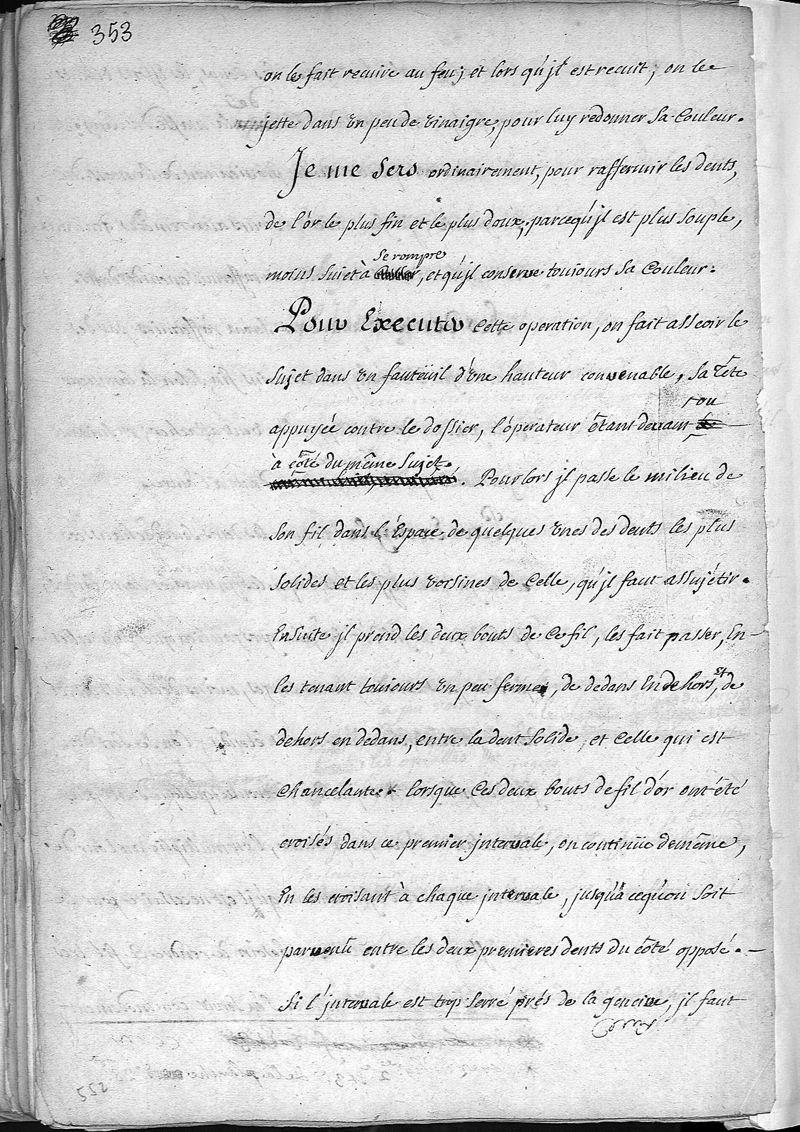 353
on le fait recuire au feu; et lors qu'jl est recuit, on le
jette dans un peu de vinaigre, pour luy redonner sa Couleur.
Je me sers ordinairement, pour raffermir les dents,
de l'or le plus fin et le plus doux, parcequ'jl est plus souple,
se rompre
moins sujet à , et qu'jl conserve toujours sa Couleur.
Pour Executer Cette operation, on fait asseoir le
sujet dans un fauteüil d'une hauteur convenable, sa tête
ou
appuyée contre le dossier, l'opérateur êtant devant
à côté du même sujet
. Pour lors jl passe le milieu de
son fil dans l'Espace de quelques unes des dents les plus
solides et les plus voisines de Celle, qu'jl faut assujétir.
Ensuite jl prend les deux bouts de Ce fil, les fait passer, En
les tenant toujours un peu fermes, de dedans En dehors, et de
dehors en dedans, entre la dent solide, et Celle qui est
Chancelante. lorsque Ces deux bouts de fil d'or ont été
croisés dans ce premier jntervale, on continüe de même,
En les croisant à chaque jntervale, jusqu'à cequ'on soit
parvenu entre les deux premieres dents du côté opposé.
Si l'jntervale est trop serré prés de la gencive, jl faut
552